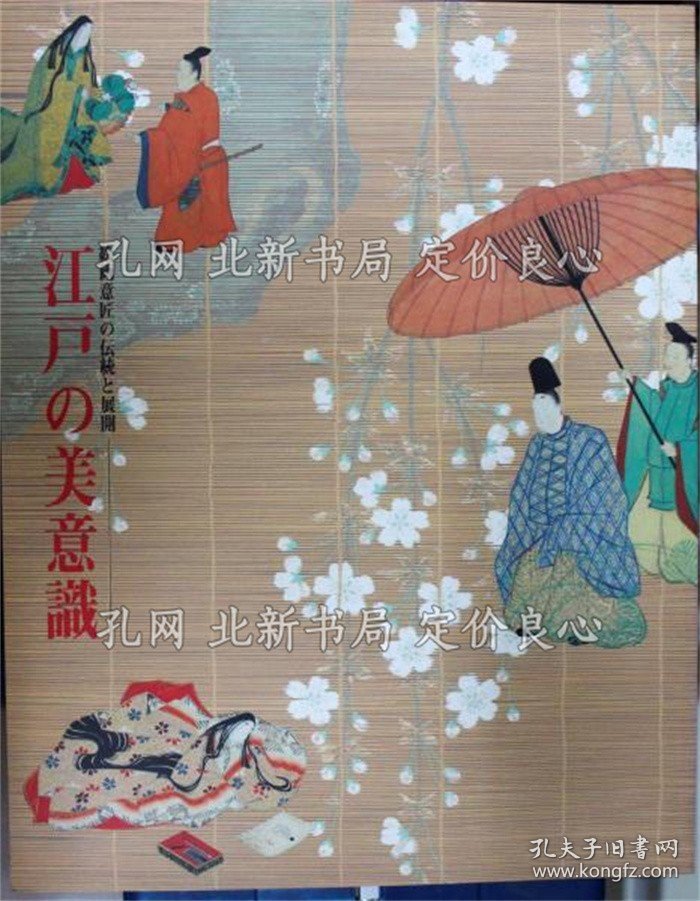 江戸の美意識
意匠の伝統と展開
孔网 北新书局 定价良心
孔网 北新书局 定价良心
孔夫子旧书网
www.kongfz.com